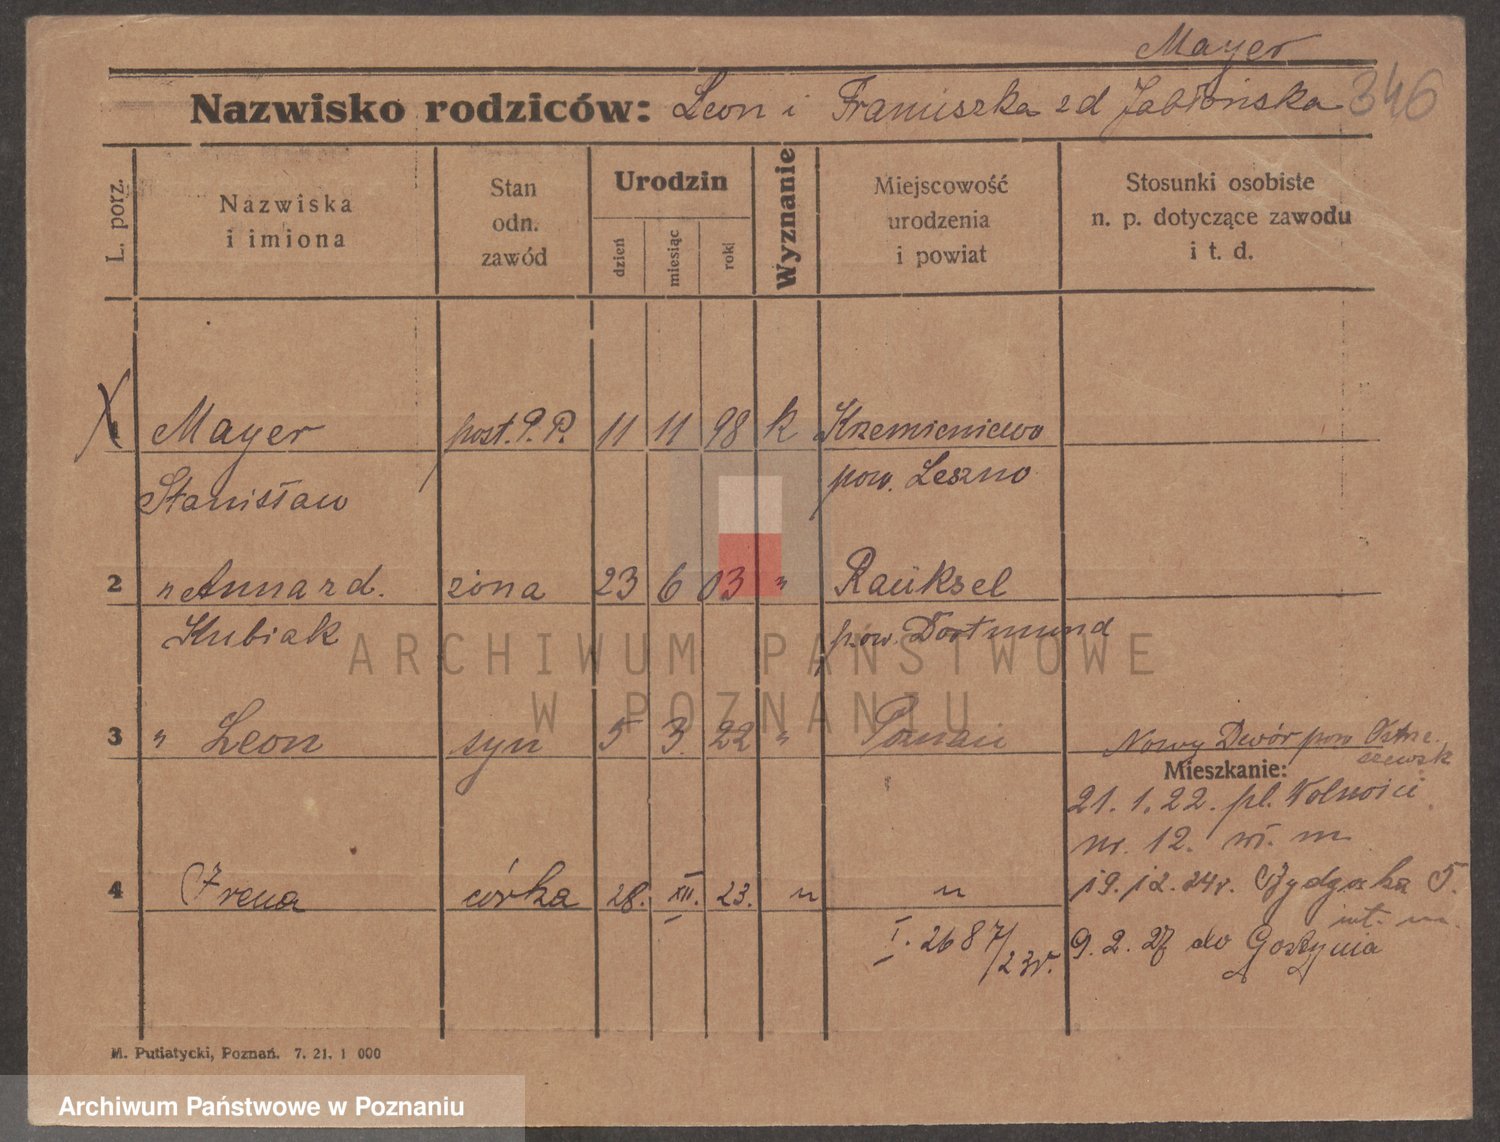 Mayer
Nazwisko rodziców: Leon i Franciszka zd Jabłońska 346
L. porz.
Nazwiska
i imiona
Stan
odn.
zawód
Urodzin
dzień
miesiąc
rok
Wyznanie
Miejscowość
urodzenia
i powiat
Stosunki osobiste
n. p. dotyczące zawodu
i t. d.
1 Mayer post. P. P. 11 11 98 k Krzemieniewo
Stanisław pow. Leszno
2 " Anna zd. żona 23 6 03 " Rauksel
Kubiak pow. Dortmund
3 " Leon syn 5 3 22 " Poznań Nowy Dwór pow Ostrze
szewsk
Mieszkanie:
21.1.22. pl. Wolności
nr. 12. wł. m
4 Irena córka 28. XII. 23. " " 19.12.24r. 5.
m.
I. 2687/23r. 9.2.27 do Gostynia
M. Putiatycki, Poznań. 7. 21. 1 000
ARCHIWUM PAŃSTWOWE
W POZNANIU
Archiwum Państwowe w Poznaniu